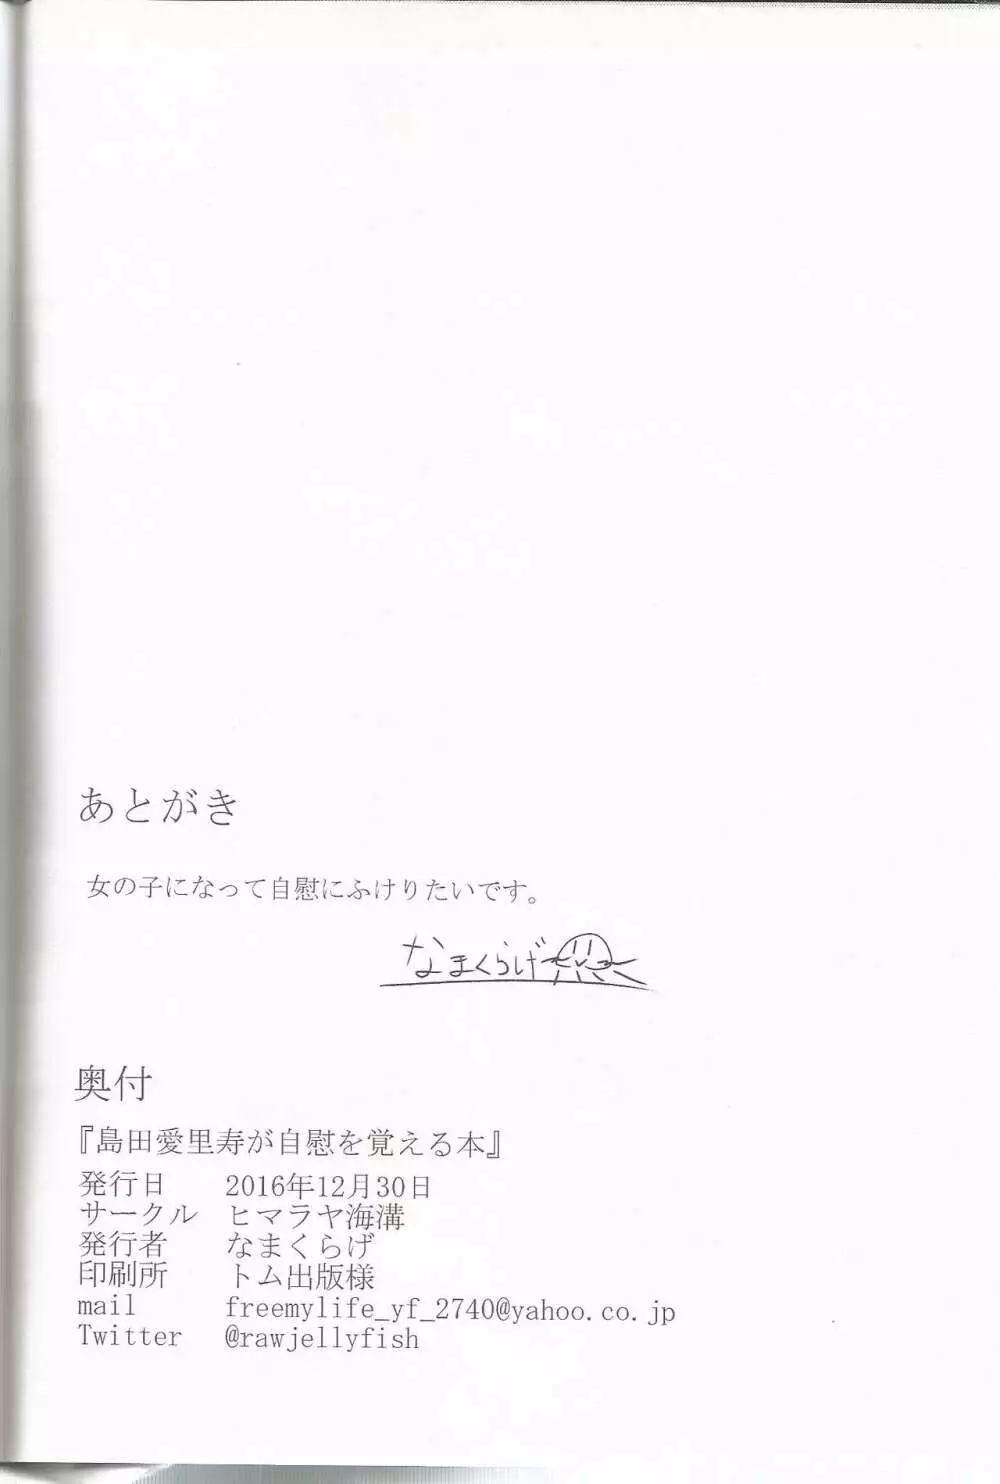 あとがき
女の子になって自慰にふけりたいです。
なまくらげ
奥付
『島田愛里寿が自慰を覚える本』
発行日 2016年12月30日
サークル ヒマラヤ海溝
発行者 なまくらげ
印刷所 トム出版様
mail freemylife_yf_2740@yahoo.co.jp
Twitter @rawjellyfish